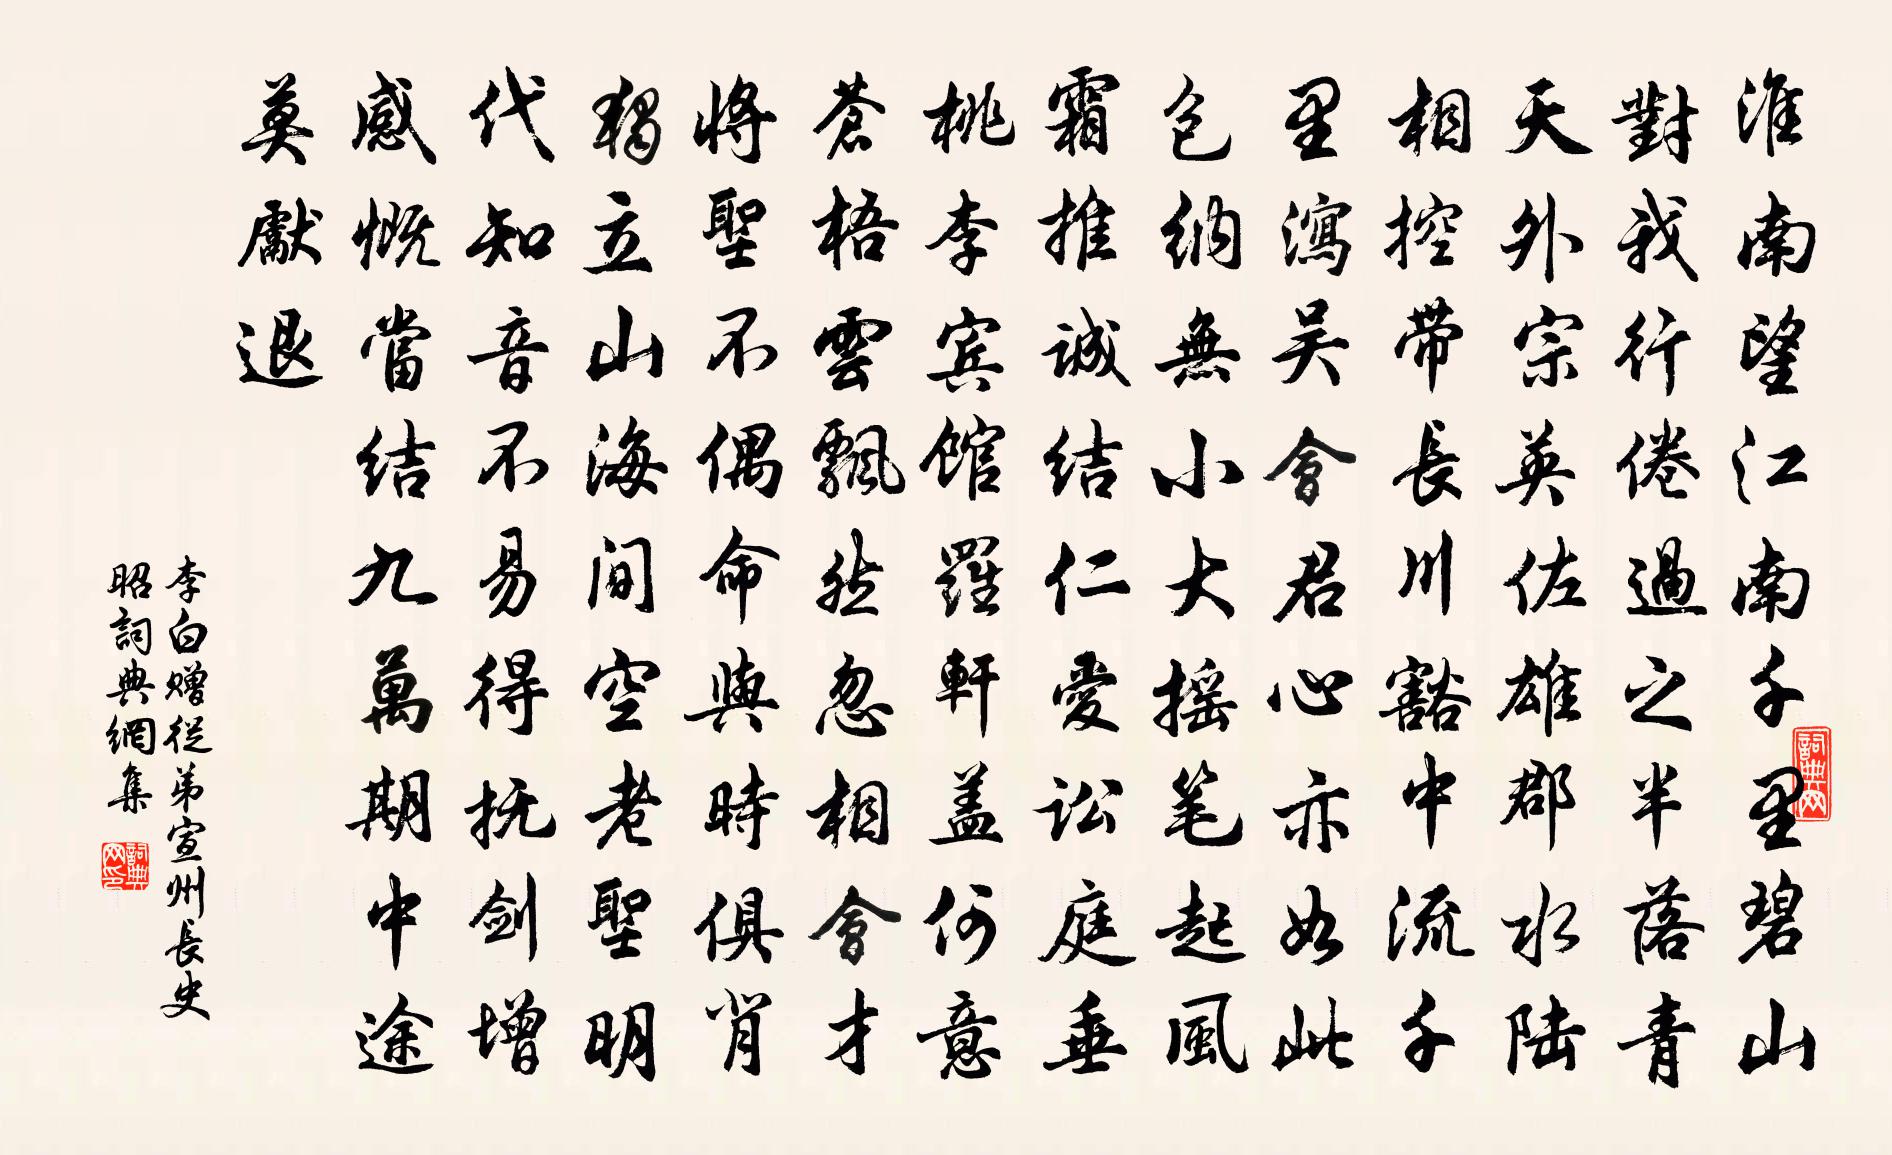 淮南望江南千里碧山
對我行倦過之半落青
天外宗英佐雄郡水陆
相控带長川豁中流千
里瀉吴會君心亦如此
包納無小大摇笔起風
霜推誠结仁愛訟庭垂
桃李宾館羅軒盖何意
蒼梧雲飄然忽相會才
將聖不偶命與時俱背
獨立山海间空老聖明
代知音不易得抚劍增
感慨當结九萬期中途
莫獻退
李白赠從弟宣州長史
昭詞典網集
詞典网
詞典网印